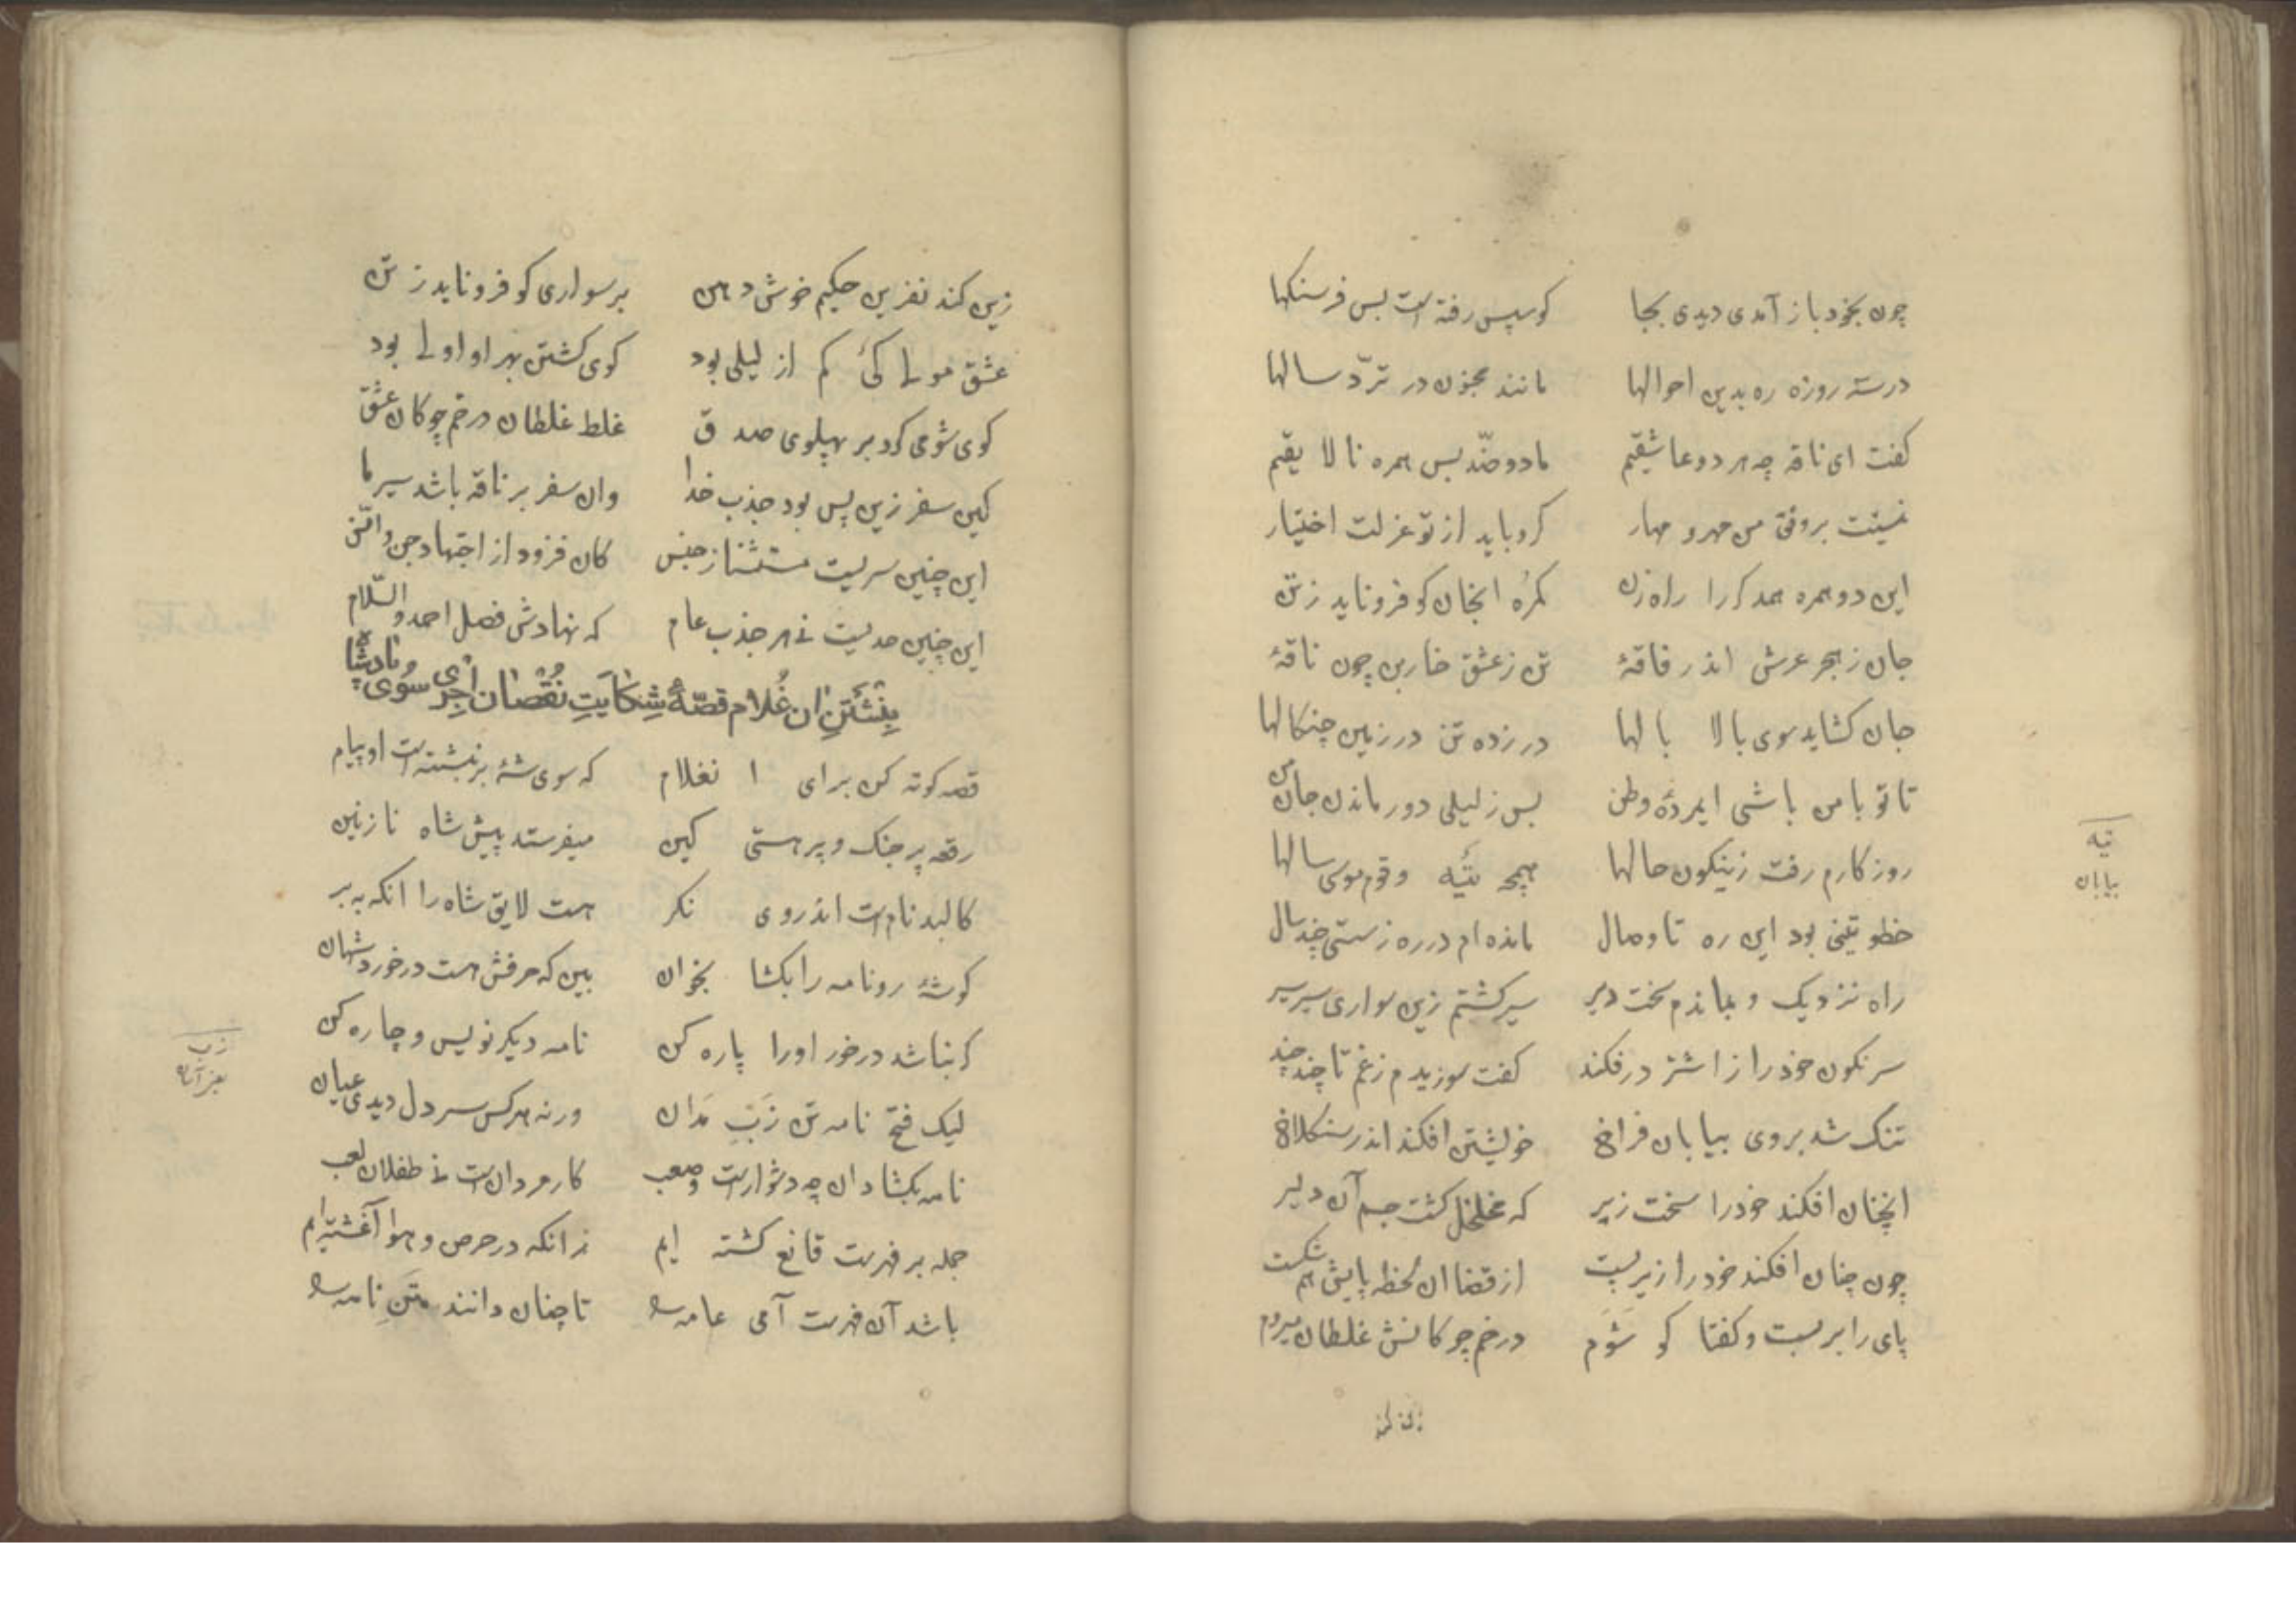 چون بخود باز آمدی دیدی بجا کو سپس رفته است بس فرسنکها
در سه روزه ره بدین احوالها مانند مجنون در تردّد سالها
کفت ای ناقه چه هر دو عاشقیم ما دو ضدّ بس همره نالایقیم
نیستت بر وفق من مهر و مهار کرد باید از تو عزلت اختیار
این دو همره همدکر را راه زن کمره انجان کو فرو ناید ز تن
جان ز هجر عرش اندر فاقهٔ تن ز عشق خاربن چون ناقهٔ
جان کشاید سوی بالا بالها در زده تن در زمین چنکالها
تا تو با من باشی ای مردهٔ وطن بس ز لیلی دور ماند جان من
روزکارم رفت زینکون حالها همچو تیه و قوم موسی سالها
تیه
بیابان
خطوتینی بود این ره تا وصال مانده ام در ره ز سستی چند سال
راه نزدیک و بماندم سخت دیر سیر کشتم زین سواری سیر سیر
سرنکون خود را ز اشتر در فکند کفت سوزیدم ز غم تا چند چند
تنک شد بر وی بیابان فراخ خویشتن افکند اندر سنکلاخ
انچنان افکند خود را سخت زیر که مخلخل کشت جسم آن دلیر
چون چنان افکند خود را زیر پست از قضا ان لحظه پایش هم شکست
پای را بر بست و کفتا کو شوم در خم چوکانش غلطان میروم
زین کند
زین کند نفرین حکیم خوش دهن بر سواری کو فرو ناید ز تن
عشق مولی کی کم از لیلی بود کوی کشتن بهر او اولی بود
کوی شو می کرد بر پهلوی صدق غلط غلطان در خم چوکان عشق
کین سفر زین پس بود جذب خدا وان سفر بر ناقه باشد سیر ما
این چنین سریست مستثنا ز جنس کان فزود از اجتهاد جن و انس
این چنین جذبیست نی هر جذب عام که نهادش فضل احمد والسّلام
بنشتن ان غلام قصّهٔ شکایت نقصان اجری سوی پادشاه
قصه کوته کن برای انغلام که سوی شه بر نبشتست او پیام
رقعه پر جنک و پر هستی کین میفرستد پیش شاه نازنین
کالبد نامست اندر وی نکر هست لایق شاه را انکه ببر
کوشهٔ رو نامه را بکشا بخوان بین که حرفش هست در خورد شهان
کر نباشد در خور اورا پاره کن نامه دیکر نویس و چاره کن
لیک فتح نامه تن زَپ مَدان ورنه هر کس سر دل دیدی عیان
زپ
یعنی آسان
نامه بکشادن چه دشوارست و صعب کار مردانست نی طفلان لعب
جمله بر فهرست قانع کشته ایم زانکه در حرص و هوا آغشته ایم
باشد آن فهرست آمی عامه را تا چنان دانند متن نامه را